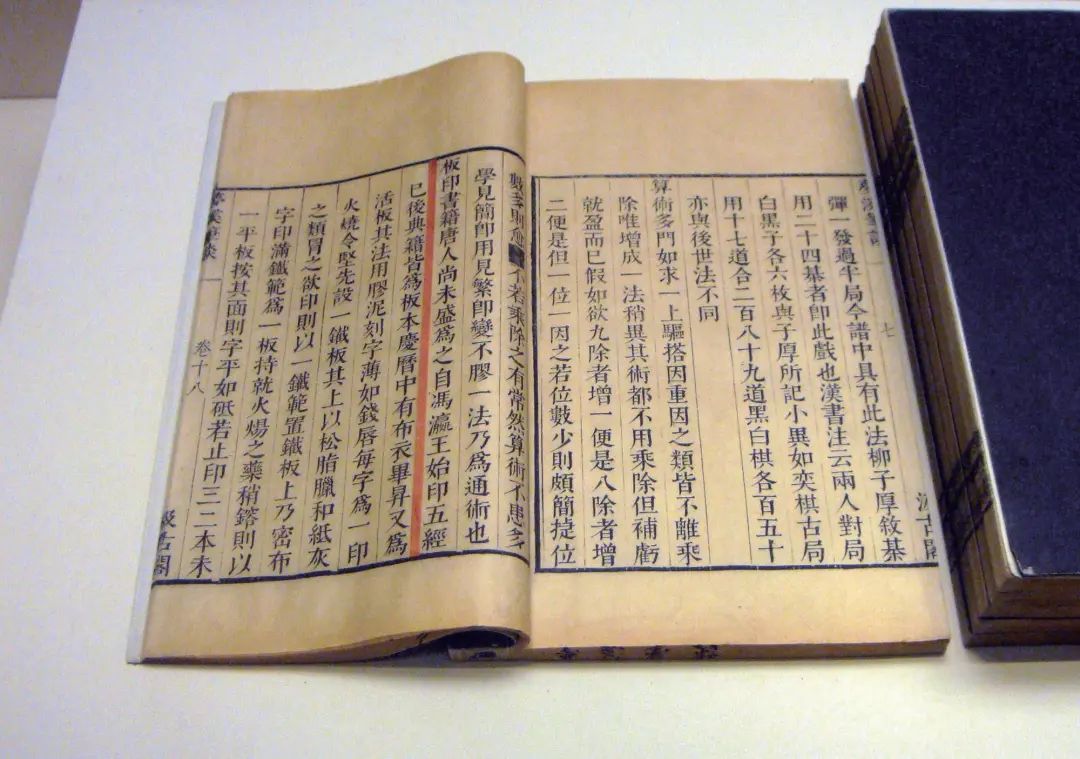 彈一發過半局今譜中具有此法柳子厚敘棊
用二十四棊者卽此戲也漢書注云兩人對局
白黑子各六枚與子厚所記小異如奕棋古局
用十七道合二百八十九道黑白棋各百五十
亦與後世法不同
算術多門如求一上驅搭因重因之類皆不離乘
除唯增成一法稍異其術都不用乘除但補虧
就盈而已假如欲九除者增一便是八除者增
二便是但一位一因之若位數少則頗簡捷位
數多則愈不若乘除之有常然算術不患多
學見簡卽用見繁卽變不膠一法乃爲通術也
板印書籍唐人尚未盛爲之自馮瀛王始印五經
已後典籍皆爲板本慶曆中有布衣畢昇又爲
活板其法用膠泥刻字薄如錢唇每字爲一印
火燒令堅先設一鐵板其上以松脂臘和紙灰
之類冒之欲印則以一鐵範置鐵板上乃密布
字印滿鐵範爲一板持就火煬之藥稍鎔則以
一平板按其面則字平如砥若止印三二本未
卷十八
汲古閣
七
汲古閣